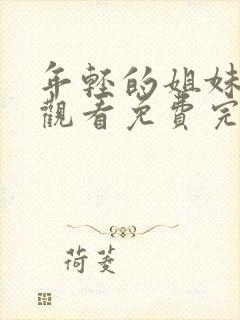 年輕的姐妹
觀看免費完
荷菱